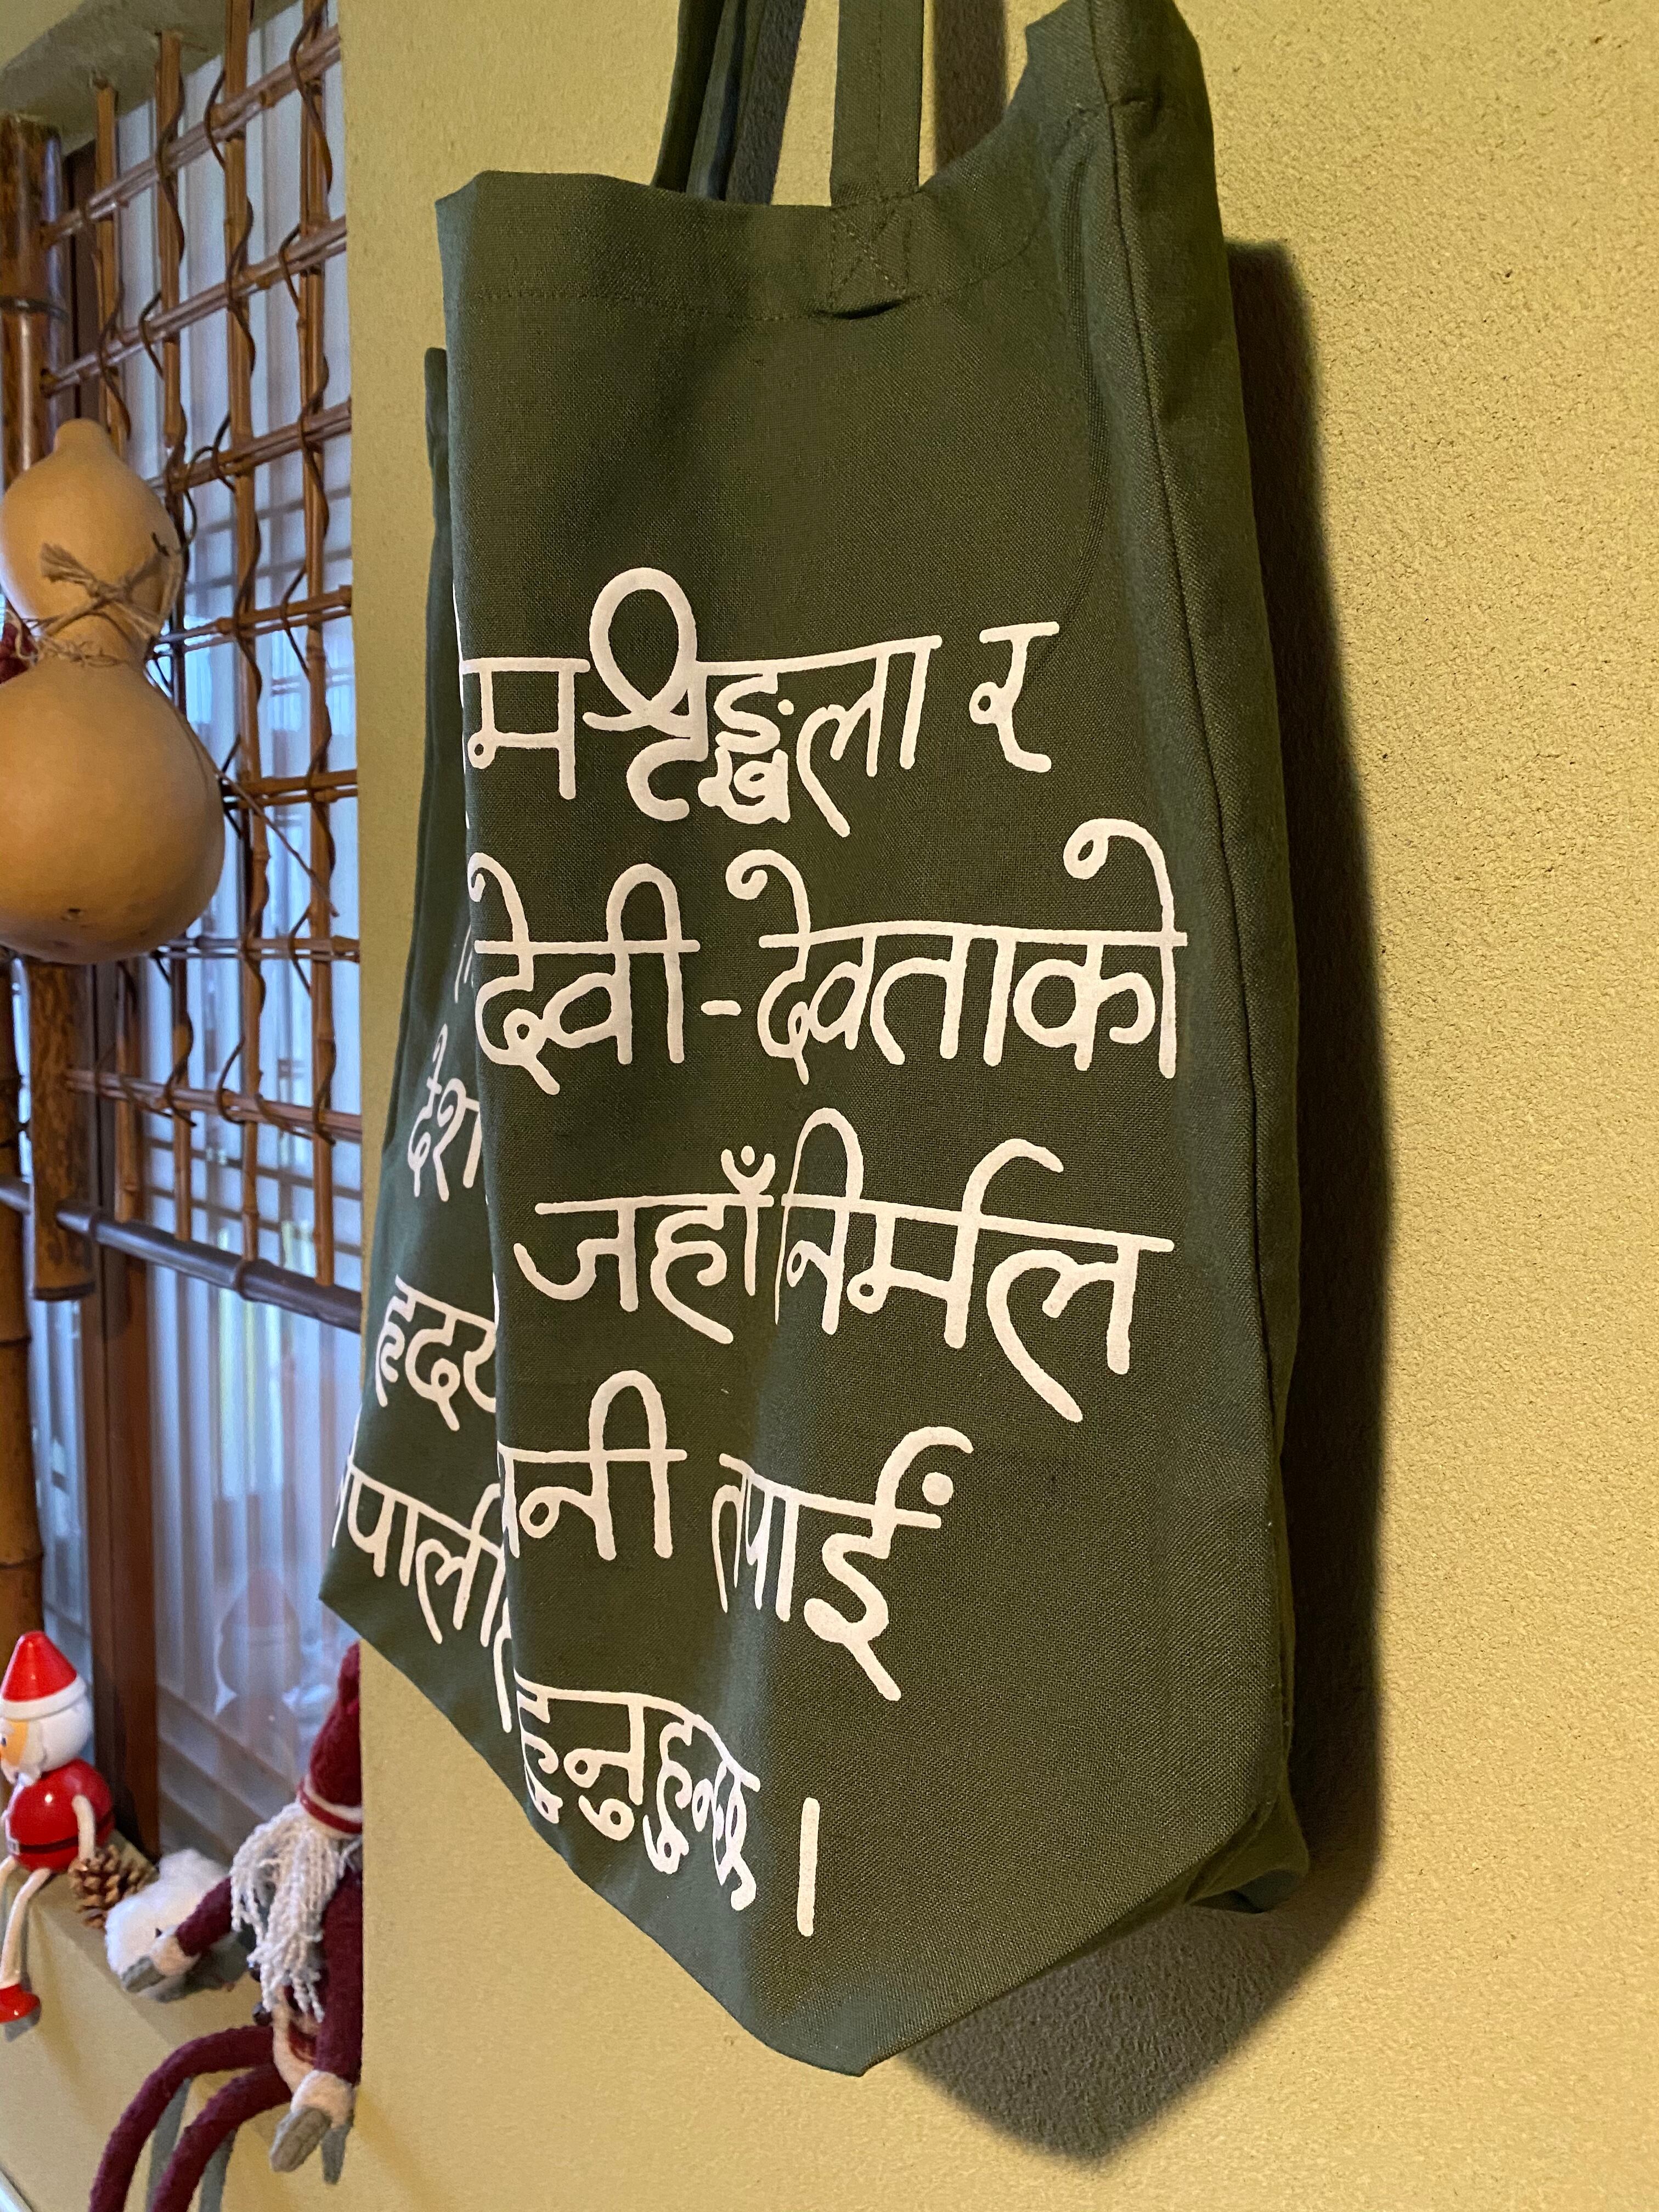 मश्रृङ्खला र
देवी-देवताको
देश जहाँ निर्मल
हृदय नी तपाईं
पाली हुनुहुन्छ ।